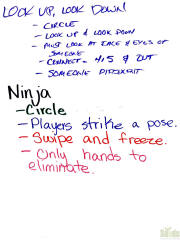 LOOK UP, LOOK DOWN
- CIRCLE
- LOOK UP & LOOK DOWN
- MUST LOOK AT FACE & EYES OF
SOMEONE
- CONNECT = 4,5 & OUT
- SOMEONE DIFFERENT
Ninja
- Circle
- Players strike a pose.
- Swipe and freeze.
- Only hands to
eliminate.